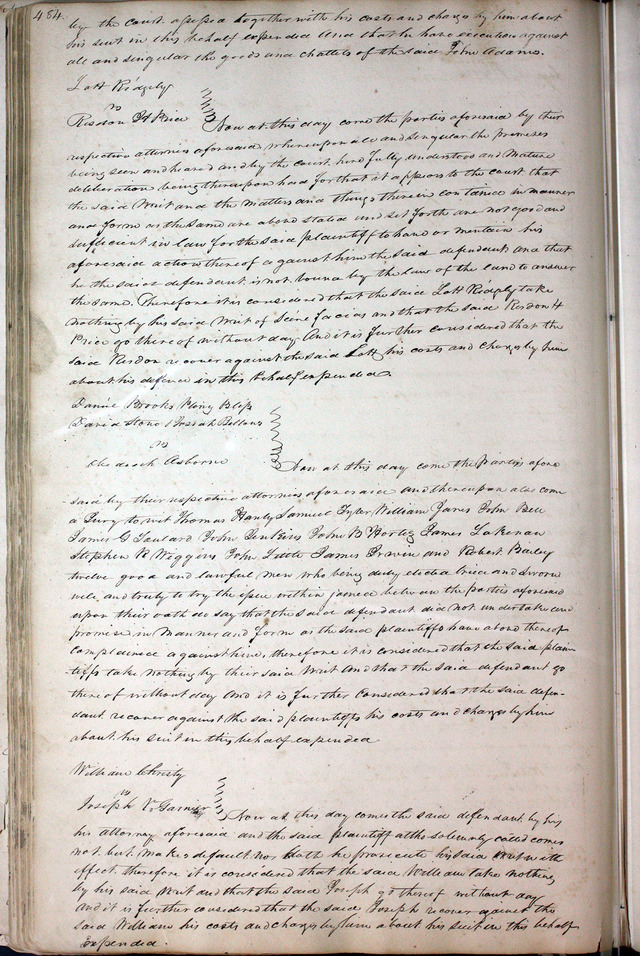 484.
by the court assessed together with his costs and charges by him about
his suit in this behalf expended and that he have execution against
all and singular the goods and chattels of the said John Adams.
Lott Ridgely
vs
Risdon H Price Now at this day come the parties aforesaid by their
respective attornies aforesaid whereupon all and singular the premises
being seen and heard and by the court here fully understood and mature
deliberation being thereupon had for that it appears to the court that
the said Writ and the Matters and things therein contained in manner
and form as the same are above stated and set forth are not good and
sufficient in law for the said plaintiff to have or mentain his
aforesaid action thereof against him the said defendant and that
he the said defendant is not bound by the law of the land to answer
the same. Therefore it is considered that the said Lott Ridgely take
nothing by his said Writ of Scire facias and that the said Risdon H
Price go thereof without day And it is further considered that the
said Risdon recover against the said Lott his costs and charges by him
about his defence in this behalf expended.
Daniel Brooks Pliny Bliss
David Stone Josiah Bellows
vs
Osborne Now at this day come the parties afore
said by their respective attornies aforesaid and thereupon also come
a Jury to wit Thomas Hanly Samuel Tyler William Janes John Bell
James G John Jenkins John B Hortiz James Lakenan
Stephen R Wiggins John Little James Irwin and Robert Bailey
twelve good and lawful men who being duly elected tried and sworn
well and truly to try the issue within joined between the parties aforesaid
upon their oath do say that the said defendant did not undertake and
promise in Manner and form as the said plaintiffs have above thereof
complained against him, therefore it is considered that the said plain
tiffs take nothing by their said Writ And that the said defendant go
thereof without day And it is further Considered that the said defen-
dant recover against the said plaintiffs his costs and charges by him
about his suit in this behalf expended
William Christy
vs
Joseph V. Garnier Now at this day comes the said defendant by his
his attorney aforesaid and the said plaintiff altho solemnly called comes
not but makes default nor doth he prosecute his said Writ with
effect, therefore it is considered that the said William take nothing
by his said Writ and that the said Joseph go thereof without day
and it is further considered that the said Joseph recover against the
said William his costs and charges by him about his suit in this behalf
Expended.